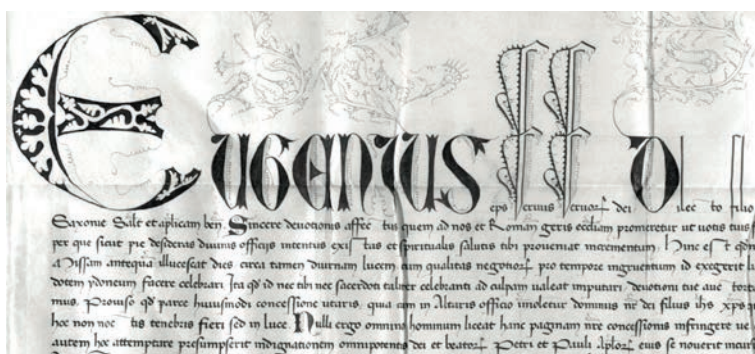 Eugenius eps seruus seruor dei Dilecto filio
Saxonie Salt et aplicam ben. Sincere deuotionis affectus quem ad nos et Romanam geris eccliam promeretur ut uotis tuis
per que sicut pie desideras diuinis officijs intentus existas et spiritualis salutis tibi proueniat incrementum. Hinc est qd
Missam antequam illucescat dies circa tamen diurnam lucem cum qualitas negotiorum pro tempore ingruentium id exegerit
dotem ydoneum facere celebrari Ita qd id nec tibi nec sacerdoti taliter celebranti ad culpam ualeat imputari deuotioni tue auctorita
mus. Prouiso qd parce huiusmodi concessione utaris, quia cum in Altaris officio imoletur dominus nr dei filius ihs xps
hoc non noctis tenebris fieri sed in luce. Nulli ergo omnino hominum liceat hanc paginam nre concessionis infringere uel
autem hoc attemptare presumpserit indignationem omnipotentis dei et beator Petri et Pauli Aplor eius se nouerit incur